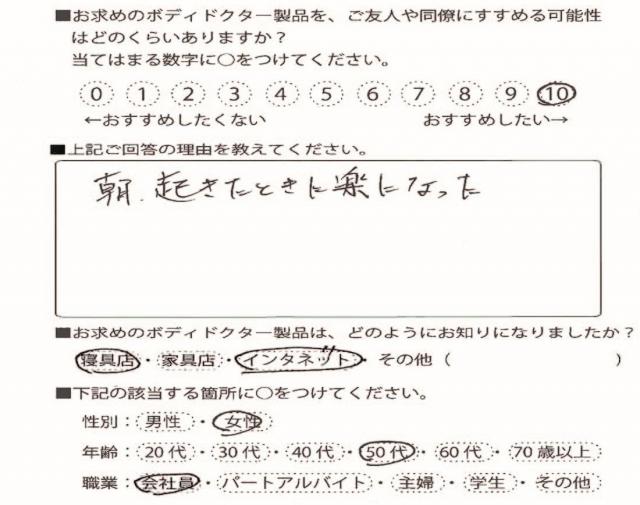 ■お求めのボディドクター製品を、ご友人や同僚にすすめる可能性
はどのくらいありますか？
当てはまる数字に○をつけてください。
0 1 2 3 4 5 6 7 8 9 10
←おすすめしたくない おすすめしたい→
■上記ご回答の理由を教えてください。
朝、起きたときに楽になった
■お求めのボディドクター製品は、どのようにお知りになりましたか？
寝具店・家具店・インタネット・その他（ ）
■下記の該当する箇所に○をつけてください。
性別：男性・女性
年齢：20代・30代・40代・50代・60代・70歳以上
職業：会社員・パートアルバイト・主婦・学生・その他